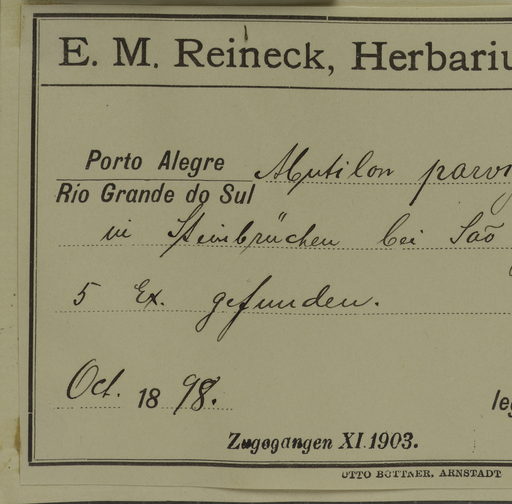 E. M. Reineck, Herbariu
Porto Alegre
Rio Grande do Sul
Abutilon parv
in Steinbrüchen bei São
5 Ex. gefunden.
Oct. 1898.
leg
Zugegangen XI.1903.
OTTO BÖTTNER, ARNSTADT